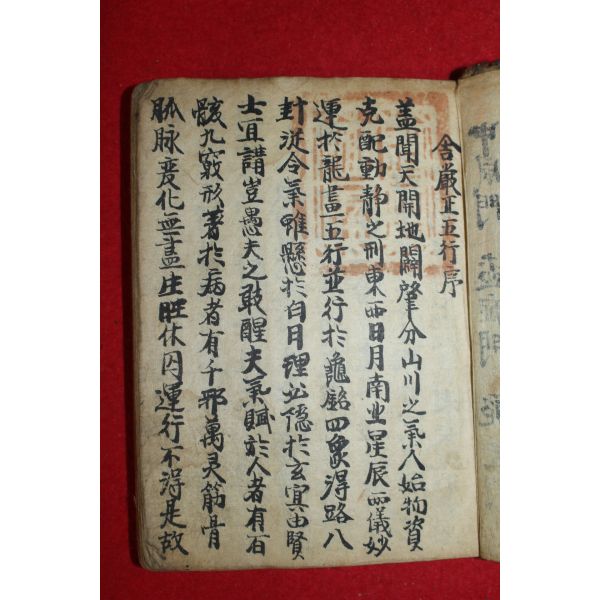 舎嚴正五行序
盖聞天開地闢肇分山川之氣人始物資
克配動静之刑東西日月南北星辰两儀妙
運於龍畫五行並行於龜銘四象得路八
封淀令氣雖懸於白月理必隱於玄冥由賢
士宜講豈愚夫之敢醒夫氣賦於人者有百
骸九竅形著於病者有千邪萬灵筋骨
脉變化無盡庄旺休囚運行不得是故